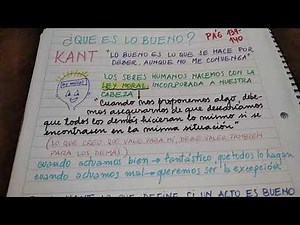 ¿QUE ES LO BUENO?
PÁG 139-
140
KANT
"LO BUENO ES LO QUE SE HACE POR
DEBER, AUNQUE NO ME CONVENGA"
LOS SERES HUMANOS NACEMOS CON LA
LEY MORAL INCORPORADA A NUESTRA
CABEZA
"Cuando nos proponemos algo, debe-
mos asegurarnos de que desearíamos
que todos los demás hicieran lo mismo si se
encontrasen en la misma situación"
(LO QUE CREO QUE VALE PARA MÍ, DEBE VALER TAMBIÉN
PARA LOS DEMÁS)
cuando actuamos bien → fantástico que todos lo hagan
cuando actuamos mal → queremos ser "la excepción"
QUE DEFINE SI UN ACTO ES BUENO